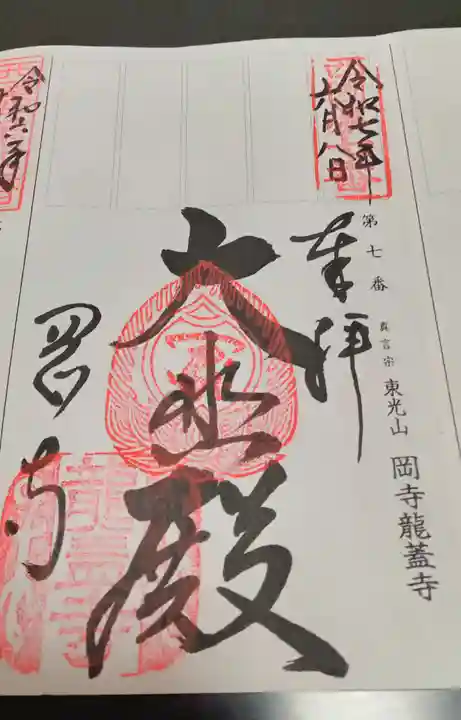 令和七年
六月八日
奉拝
第七番 真言宗 東光山 岡寺龍蓋寺
大悲殿
岡寺
令和六年